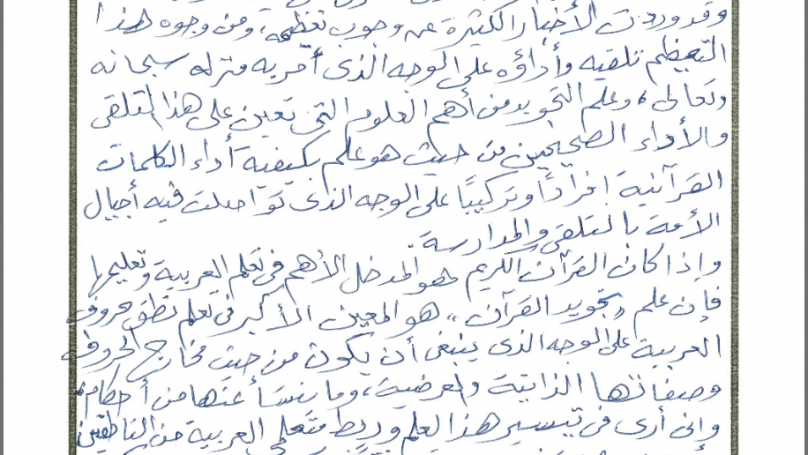 وقد وردت الأخبار الكثيرة عن وجوب تعظيمه، ومن وجوه هذا
التعظيم تلقيه وأداؤه على الوجه الذى أمر به منزله سبحانه
وتعالى، وعلم التجويد من أهم العلوم التى تعين على هذا التلقى
والأداء الصحيحين من حيث هو علم بكيفية أداء الكلمات
القرآنية إفرادًا وتركيبًا على الوجه الذى تواصلت فيه أجيال
الأمة بالتلقى والمدارسة.
وإذا كان القرآن الكريم هو المدخل الأهم فى تعلم العربية وتعليمها
فإن علم «تجويد القرآن» هو المعين الأكبر فى تعلم نطق حروف
العربية على الوجه الذى ينبغى أن يكون من حيث مخارج الحروف
وصفاتها الذاتية والعرضية، وما ينشأ عنها من أحكام،
وإنى أرى فى تيسير هذا العلم وربط متعلمى العربية من الناطقين